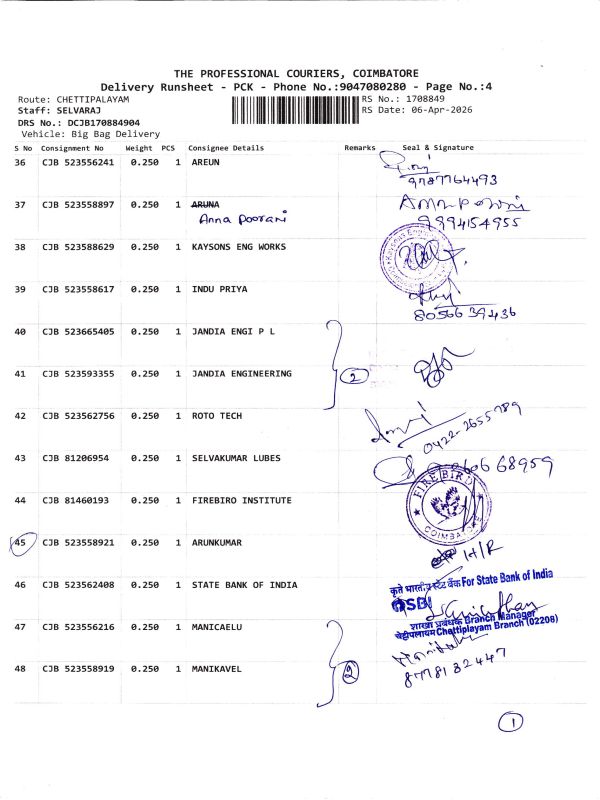 THE PROFESSIONAL COURIERS, COIMBATORE
Delivery Runsheet - PCK - Phone No.:9047080280 - Page No.:4
Route: CHETTIPALAYAM RS No.: 1708849
Staff: SELVARAJ RS Date: 06-Apr-2026
DRS No.: DCJB170884904
Vehicle: Big Bag Delivery
S No Consignment No Weight PCS Consignee Details Remarks Seal & Signature
36 CJB 523556241 0.250 1 AREUN
9787764493
37 CJB 523558897 0.250 1 ARUNA
Anna Poorani
9994154955
38 CJB 523588629 0.250 1 KAYSONS ENG WORKS
39 CJB 523558617 0.250 1 INDU PRIYA
8056639436
40 CJB 523665405 0.250 1 JANDIA ENGI P L
41 CJB 523593355 0.250 1 JANDIA ENGINEERING 2
42 CJB 523562756 0.250 1 ROTO TECH
0422-2655789
43 CJB 81206954 0.250 1 SELVAKUMAR LUBES
68959
44 CJB 81460193 0.250 1 FIREBIRO INSTITUTE
FIREBIRD
COIMBATORE
45 CJB 523558921 0.250 1 ARUNKUMAR
H/R
46 CJB 523562408 0.250 1 STATE BANK OF INDIA
कृते भारतीय स्टेट बैंक For State Bank of India
SBI
शाखा प्रबंधक Branch Manager
चेट्टीपलायम Chettipalayam Branch (02208)
47 CJB 523556216 0.250 1 MANICAELU
48 CJB 523558919 0.250 1 MANIKAVEL 2
8778132447
1